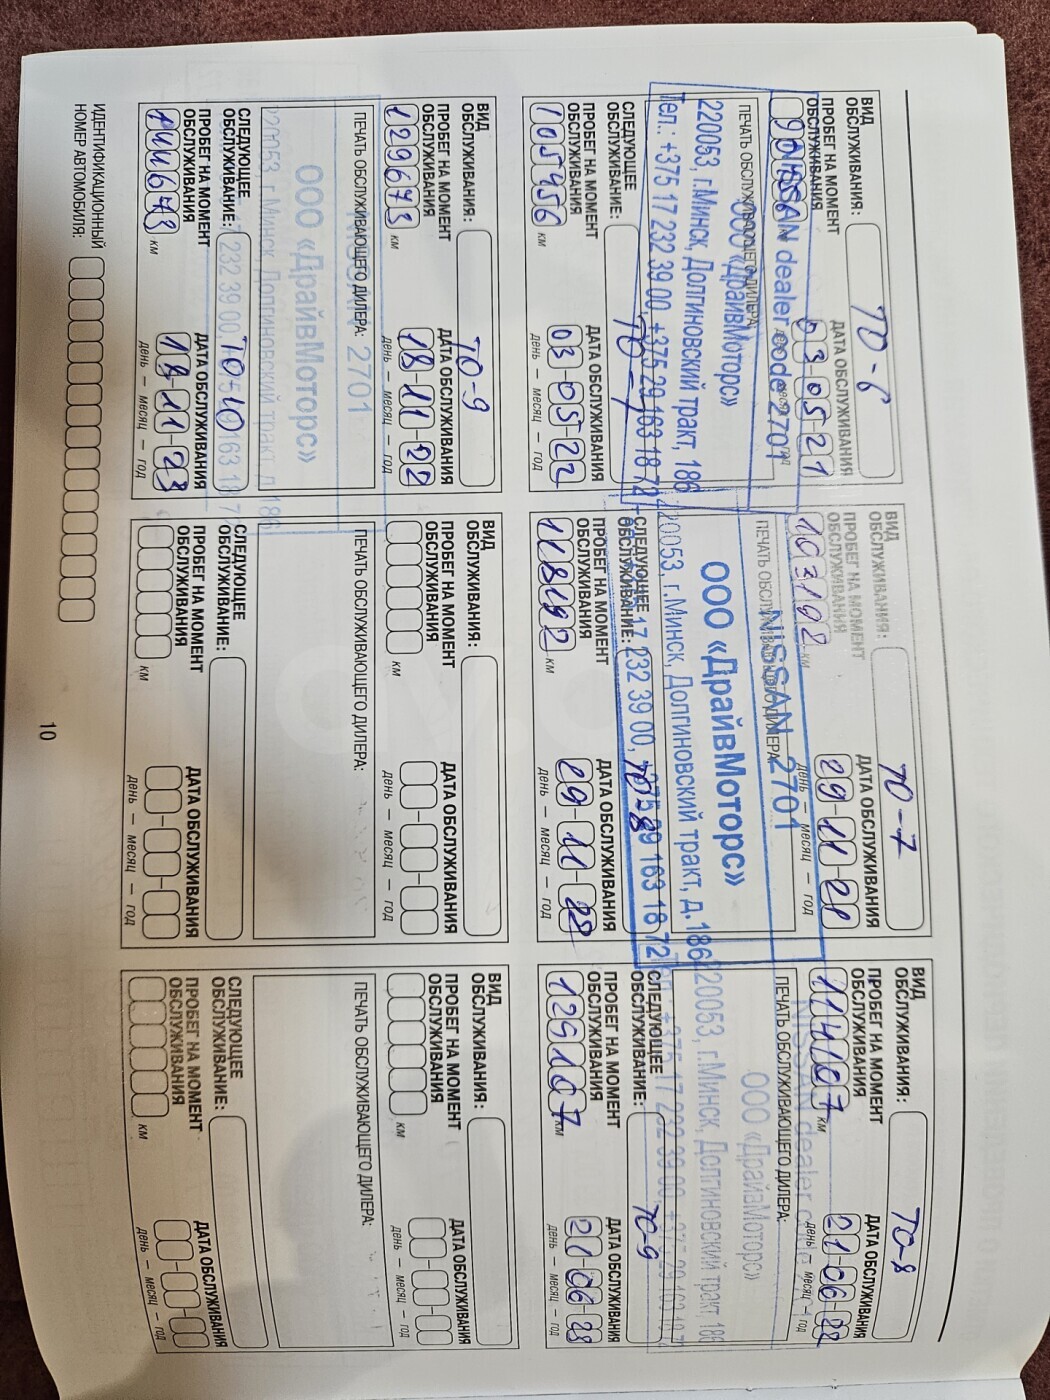 ВИД
ОБСЛУЖИВАНИЯ: ТО-6
ПРОБЕГ НА МОМЕНТ
ОБСЛУЖИВАНИЯ
ДАТА ОБСЛУЖИВАНИЯ
03-05-21
ПЕЧАТЬ ОБСЛУЖИВАЮЩЕГО ДИЛЕРА:
NISSAN dealer code 2701
ООО «ДрайвМоторс»
220053, г.Минск, Долгиновский тракт, 186
Тел.: +375 17 232 39 00, +375 29 163 18 72
СЛЕДУЮЩЕЕ
ОБСЛУЖИВАНИЕ: ТО-7
ПРОБЕГ НА МОМЕНТ
ОБСЛУЖИВАНИЯ
105456 км
ДАТА ОБСЛУЖИВАНИЯ
03-05-22
день — месяц — год
ВИД
ОБСЛУЖИВАНИЯ: ТО-7
ПРОБЕГ НА МОМЕНТ
ОБСЛУЖИВАНИЯ
103192 км
ДАТА ОБСЛУЖИВАНИЯ
29-11-21
день — месяц — год
ПЕЧАТЬ ОБСЛУЖИВАЮЩЕГО ДИЛЕРА:
NISSAN 2701
ООО «ДрайвМоторс»
220053, г.Минск, Долгиновский тракт, д. 186
17 232 39 00, +375 29 163 18 72
СЛЕДУЮЩЕЕ
ОБСЛУЖИВАНИЕ: ТО-8
ПРОБЕГ НА МОМЕНТ
ОБСЛУЖИВАНИЯ
118192 км
ДАТА ОБСЛУЖИВАНИЯ
29-11-22
день — месяц — год
ВИД
ОБСЛУЖИВАНИЯ: ТО-8
ПРОБЕГ НА МОМЕНТ
ОБСЛУЖИВАНИЯ
114167 км
ДАТА ОБСЛУЖИВАНИЯ
21-06-22
день — месяц — год
ПЕЧАТЬ ОБСЛУЖИВАЮЩЕГО ДИЛЕРА:
NISSAN dealer
ООО «ДрайвМоторс»
220053, г.Минск, Долгиновский тракт, 186
+375 17 232 39 00, +375 29 163 18 72
СЛЕДУЮЩЕЕ
ОБСЛУЖИВАНИЕ: ТО-9
ПРОБЕГ НА МОМЕНТ
ОБСЛУЖИВАНИЯ
129167 км
ДАТА ОБСЛУЖИВАНИЯ
21-06-23
день — месяц — год
ВИД
ОБСЛУЖИВАНИЯ: ТО-9
ПРОБЕГ НА МОМЕНТ
ОБСЛУЖИВАНИЯ
129673 км
ДАТА ОБСЛУЖИВАНИЯ
18-11-22
день — месяц — год
ПЕЧАТЬ ОБСЛУЖИВАЮЩЕГО ДИЛЕРА:
2701
ООО «ДрайвМоторс»
220053, г.Минск, Долгиновский тракт, д. 186
232 39 00, 163 18 7
СЛЕДУЮЩЕЕ
ОБСЛУЖИВАНИЕ: ТО-10
ПРОБЕГ НА МОМЕНТ
ОБСЛУЖИВАНИЯ
144673 км
ДАТА ОБСЛУЖИВАНИЯ
18-11-23
день — месяц — год
ВИД
ОБСЛУЖИВАНИЯ:
ПРОБЕГ НА МОМЕНТ
ОБСЛУЖИВАНИЯ
км
ДАТА ОБСЛУЖИВАНИЯ
день — месяц — год
ПЕЧАТЬ ОБСЛУЖИВАЮЩЕГО ДИЛЕРА:
СЛЕДУЮЩЕЕ
ОБСЛУЖИВАНИЕ:
ПРОБЕГ НА МОМЕНТ
ОБСЛУЖИВАНИЯ
км
ДАТА ОБСЛУЖИВАНИЯ
день — месяц — год
ВИД
ОБСЛУЖИВАНИЯ:
ПРОБЕГ НА МОМЕНТ
ОБСЛУЖИВАНИЯ
км
ДАТА ОБСЛУЖИВАНИЯ
день — месяц — год
ПЕЧАТЬ ОБСЛУЖИВАЮЩЕГО ДИЛЕРА:
СЛЕДУЮЩЕЕ
ОБСЛУЖИВАНИЕ:
ПРОБЕГ НА МОМЕНТ
ОБСЛУЖИВАНИЯ
км
ДАТА ОБСЛУЖИВАНИЯ
день — месяц — год
ИДЕНТИФИКАЦИОННЫЙ
НОМЕР АВТОМОБИЛЯ:
10